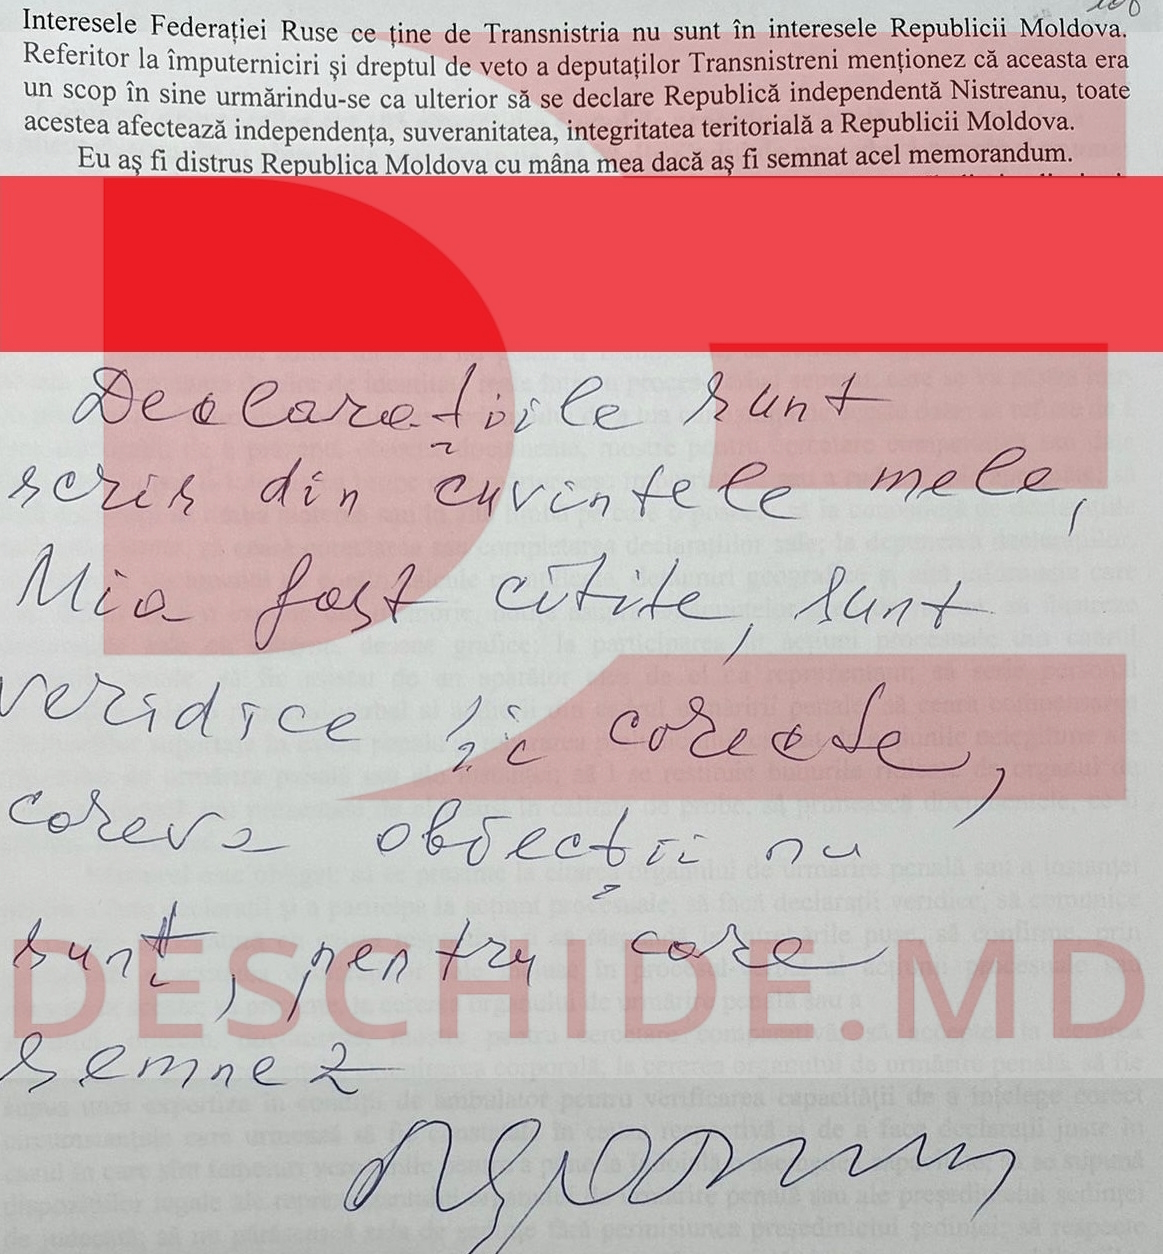 Interesele Federației Ruse ce ține de Transnistria nu sunt în interesele Republicii Moldova.
Referitor la împuterniciri și dreptul de veto a deputaților Transnistreni menționez că aceasta era
un scop în sine urmărindu-se ca ulterior să se declare Republică independentă Nistreanu, toate
acestea afectează independența, suveranitatea, integritatea teritorială a Republicii Moldova.
Eu aș fi distrus Republica Moldova cu mâna mea dacă aș fi semnat acel memorandum.
Declarațiile sunt
scris din cuvintele mele,
Mia fost citite, sunt
veridice și corecte,
careva obiecții nu
sunt, pentru care
semnez
DESCHIDE.MD